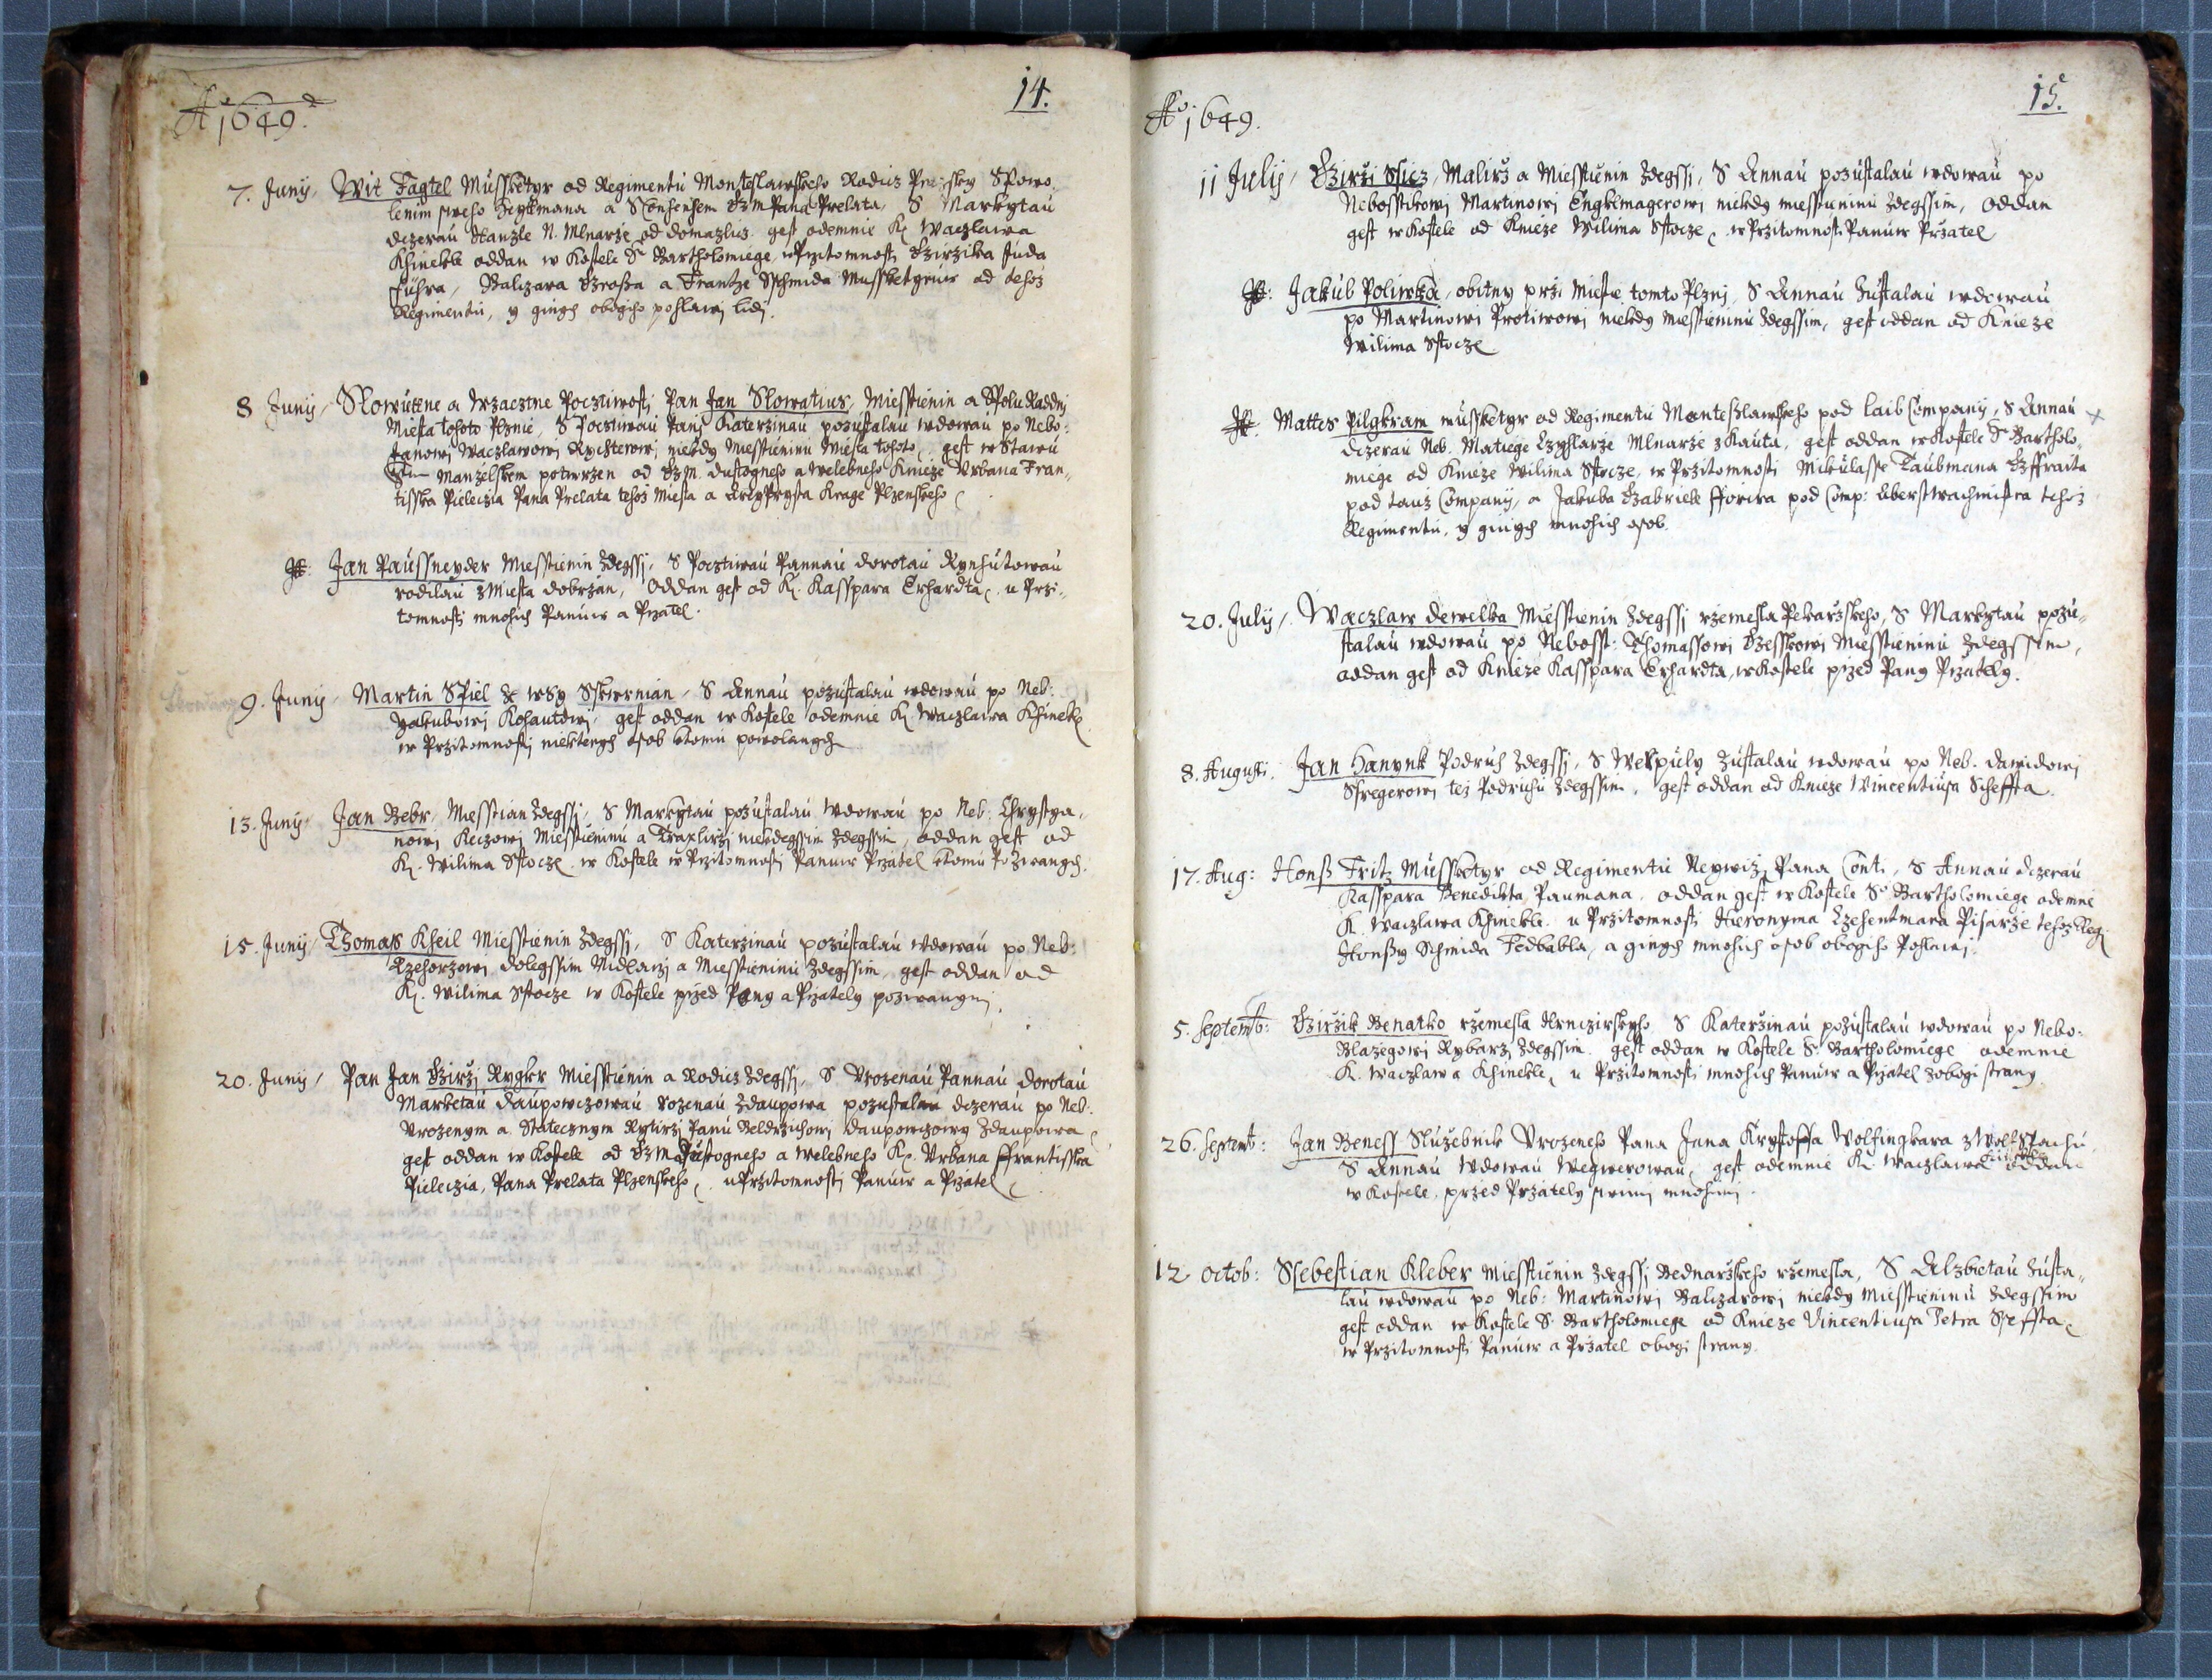 14.
Aº 1649.
7. Junij / Wit Fagtel Mussketyr od Regimentu Monteslawskeho Rodicz Prażsky S Powo„
lenim sweho Heytmana a S Consensem Dz M Pana Prelata, S Markytau
dczerau Hanzle N. Mlnarże od domazlicz gest odemnie K. Waczlawa
Khinekle oddan w Kostele S. Bartholomiege, w Przitomnosti Dzirzika Juda
Balczara a Frantze Sschmida Mussketyruw od tehoż
Regimentu, y ginych obogiho pohlawi lidj.
8 Junij / Slowutne a Wzaczne Pocztiwosti Pan Jan Slowatius, Miesstienin a Spolu Raddnj
Miesta tohoto Plznie, S Pocztiwau Panj Katerzinau pozustalau wdowau po Nebo:
Janowi Waczlawowi Rychterowi niekdy Miesstieninu Miesta tohoto, gest w Stawu
Manżelskem potwrzen od Dz M. dustogneho a Welebneho Knieze Urbana Fran„
tisska Pieleczia Pana Prelata tehoż Miesta a Arcypryssta Krage Plzenskeho
Jan Paussneyder Miesstienin Zdegssj, S Pocztiwau Pannau dorotau Rynhutowau
rodilau z Miesta dobrzan, Oddan gest od K. Kasspara Erhardta, u Przi„
tomnosti mnohich Panuw a Przatel.
9. Junij / Martin Spiel ze wsy Sskwrnian, S Annau pozustalau wdowau po Neb:
Jakubowi Kohautowi, gest oddan w Kostele odemnie K. Waczlawa Khinekle
w Przitomnosti niekterych osob ktomu powolanych
13. Junij / Jan Bebr, Miesstian Zdegssj, S Markytau pozustalau Wdowau po Neb: Chrystya„
nowi Keczowi Miesstieninu a niekdegssim Zdegssim, oddan gest od
K. Wilima Sstocze w Kostele w Przitomnosti Panuw Przatel ktomu Pozwanych.
15. Junij / Thomas Kheil Miesstienin Zdegssj, S Katerzinau pozustalau Wdowau po Neb:
Rzehorzowi dolegssim Midlarzi a Miesstieninu Zdegssim, gest oddan od
K. Wilima Sstocze w Kostele przed Pany a Przately pozwanymi.
20. Junij / Pan Jan Dzirżj Rygkr Miesstienin a Rodicz Zdegssj, S Vrozenau Pannau dorotau
Marketau daupowczowau rozenau Zdaupowa pozustalau dczerau po Neb:
Vrozenym a Statecznym Rytirzi Panu Beldrzichowi daupowczowy Zdaupowa
gest oddan w Kostele od Dz M dustogneho a Welebneho K. Urbana Ffrantisska
Pieleczia, Pana Prelata Plzenskeho, u Przitomnosti Panuw a Przatel
15.
Aº 1649.
11 Julij / Dzirżi Ssicz, Malirż a Miesstienin Zdegssi, S Annau pozustalau wdowau po
Nebosstikowi Martinowi Engklmagerowi niekdy miesstieninu Zdegssim, Oddan
gest w Kostele od Knieze Wilima Sstocze, w Przitomnosti Panuw Przatel
Jakub Poliwka, obitny przi Miestie tomto Plznj, S Annau Zustalau wdowau
po Martinowi Protiwowi niekdy Miesstieninu Zdegssim, gest oddan od Knieze
Wilima Sstocze
Mattes Pilgkram mussketyr od Regimentu Monteslawskeho pod Laib Companij, S Annau ×
dczerau Neb. Matiege Czyhlarże Mlnarże z Kauta, gest oddan w Kostele S. Bartholo„
miege od Knieze Wilima Sstocze, w Przitomnosti Mikulasse Taubmana Gffraita
pod tauż Companij, a Jakuba Gabriele pod Comp: Oberstwachmistra tehoż
Regimentu, y ginych mnohich osob.
20. Julij / Waczlaw dewelka Miesstienin Zdegssj rżemesla Pekarżskeho, S Markytau pozu„
stalau wdowau po Nebosst: Thomassowi Miesstieninu Zdegssim,
oddan gest od Knieze Kasspara Erhardta, w Kostele przed Pany Przately.
8. Augusti. Jan Hanynk Podruh Zdegssj, S Wokpuly Zustalau wdowau po Neb. dawidowi
Sfregerowi też Podruhu Zdegssim, gest oddan od Knieze Vincentiusa Scheffta.
17. Aug: Honß Fritz Mussketyr od Regimentu Neywiż Pana Conte, S Annau dczerau
Kasspara Benedikta Paumana, oddan gest w Kostele Sº Bartholomiege odemne
K. Waczlawa Khinekle u Przitomnosti Hieronyma Czehentmara Pisarże tehoż Reg:
Honßy Schmida Fedbabla, a ginych mnohich osob obogiho Pohlawj.
5. Septemb: Dzirżik Benatko rżemesla Hrnczirskyho S Katerżinau pozustalau wdowau po Nebo:
Blażegowi Rybarzi Zdegssim gest oddan w Kostele S. Bartholomiege odemnie
K. Waczlawa Khinekle, u Przitomnosti mnohich Panuw a Przatel z obogi strany
26. Septemb: Jan Beness Służebnik Vrozeneho Pana Jana Krystoffa Wolfingkara z
S Annau Wdowau Wegwerowau, gest odemnie K. Waczlawa Khinekle oddan
w Kostele przed Przately swimi mnohimi.
12 Octob: Ssebestian Kleber Miesstienin Zdegssj Bednarżskeho rżemesla, S Alzbietau Zusta„
lau wdowau po Neb: Martinowi Balczarowi niekdy Miesstieninu Zdegssim
gest oddan w Kostele S. Bartholomiege od Knieze Vincentiusa Petra Sseffta
w Przitomnosti Panuw a Przatel obogi strany